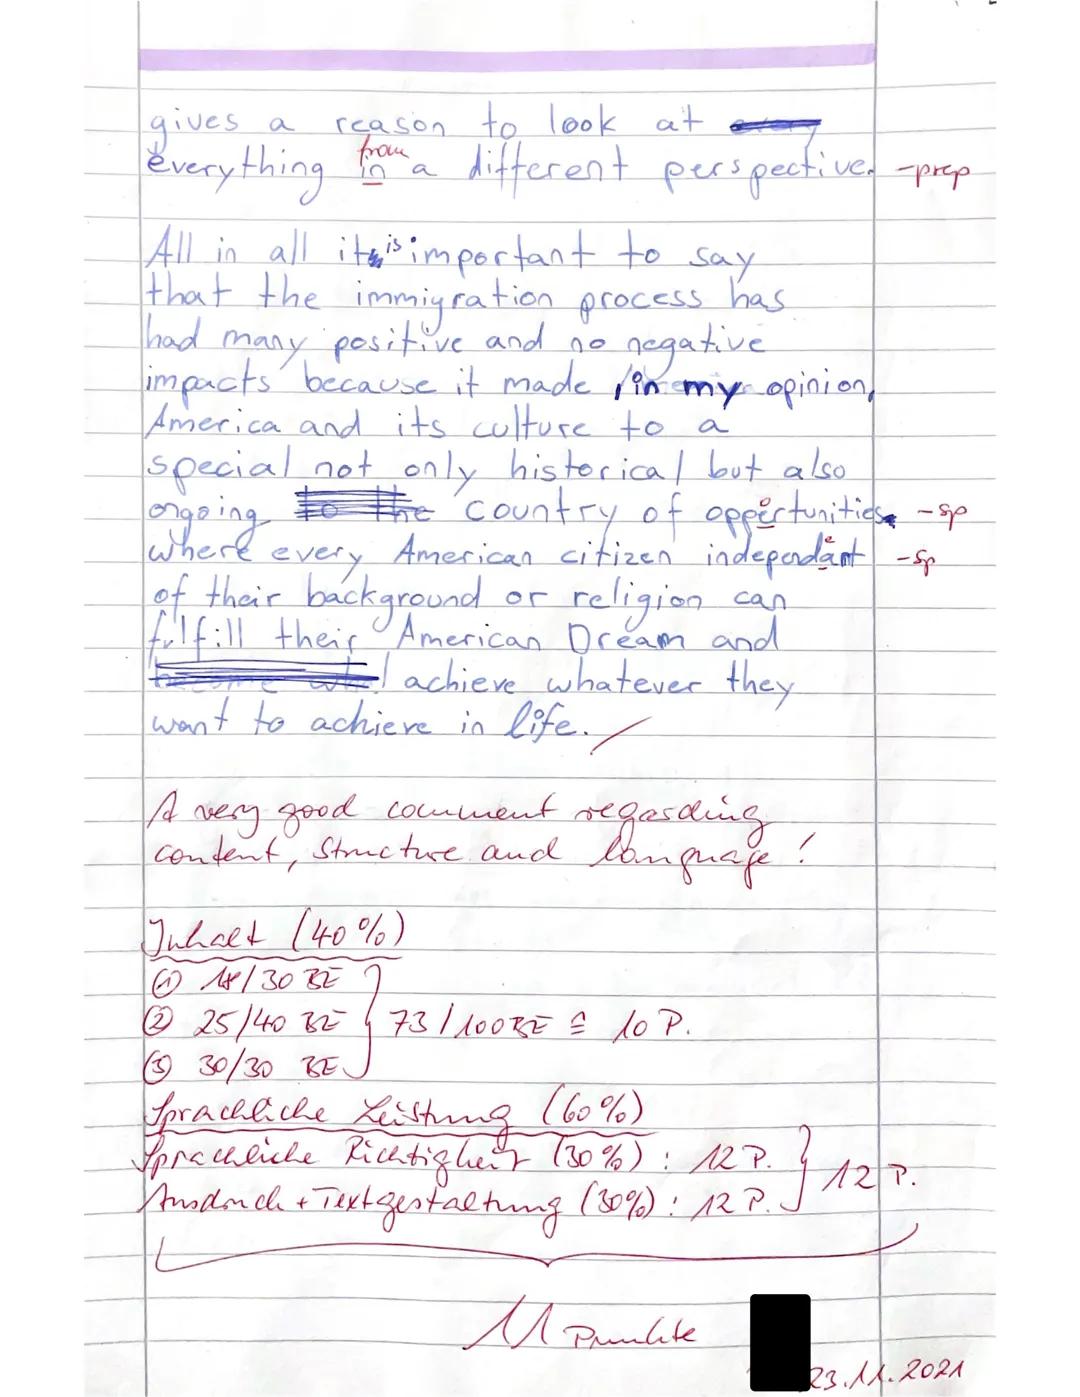 gives a reason to look at
from
everything in a different perspective. -prep
All in all it is important to say
that the immigration process has
had many positive and no negative
impacts because it made , in my opinion,
America and its culture to a
special not only historical but also
ongoing to the country of oppertunities -sp
where every American citizen independant -sp
of their background or religion can
fulfill their American Dream and
achieve whatever they
want to achieve in life.
A very good comment regarding
content, structure and language!
Inhalt (40%)
① 18/30 BE
② 25/40 BE } 73/100 BE ≙ 10 P.
③ 30/30 BE
Sprachliche Leistung (60%)
Sprachliche Richtigkeit (30%): 12 P. } 12 P.
Ausdruck + Textgestaltung (30%): 12 P.
11 Punkte
23.11.2021